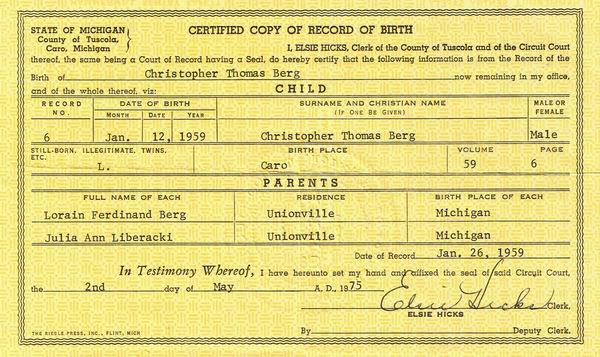 CERTIFIED COPY OF RECORD OF BIRTH
STATE OF MICHIGAN
County of Tuscola,
Caro, Michigan
I, ELSIE HICKS, Clerk of the County of Tuscola and of the Circuit Court
thereof, the same being a Court of Record having a Seal, do hereby certify that the following information is from the Record of the
Birth of Christopher Thomas Berg now remaining in my office,
and of the whole thereof, viz:
CHILD
RECORD NO. DATE OF BIRTH SURNAME AND CHRISTIAN NAME MALE OR FEMALE
MONTH DATE YEAR (IF ONE BE GIVEN)
6 Jan. 12, 1959 Christopher Thomas Berg Male
STILL-BORN, ILLEGITIMATE, TWINS, ETC. BIRTH PLACE VOLUME PAGE
L. Caro 59 6
PARENTS
FULL NAME OF EACH RESIDENCE BIRTH PLACE OF EACH
Lorain Ferdinand Berg Unionville Michigan
Julia Ann Liberacki Unionville Michigan
Date of Record Jan. 26, 1959
In Testimony Whereof, I have hereunto set my hand and affixed the seal of said Circuit Court,
the 2nd day of May A. D., 1975
Elsie Hicks Clerk.
ELSIE HICKS
THE RIEGLE PRESS, INC., FLINT, MICH
By Deputy Clerk.